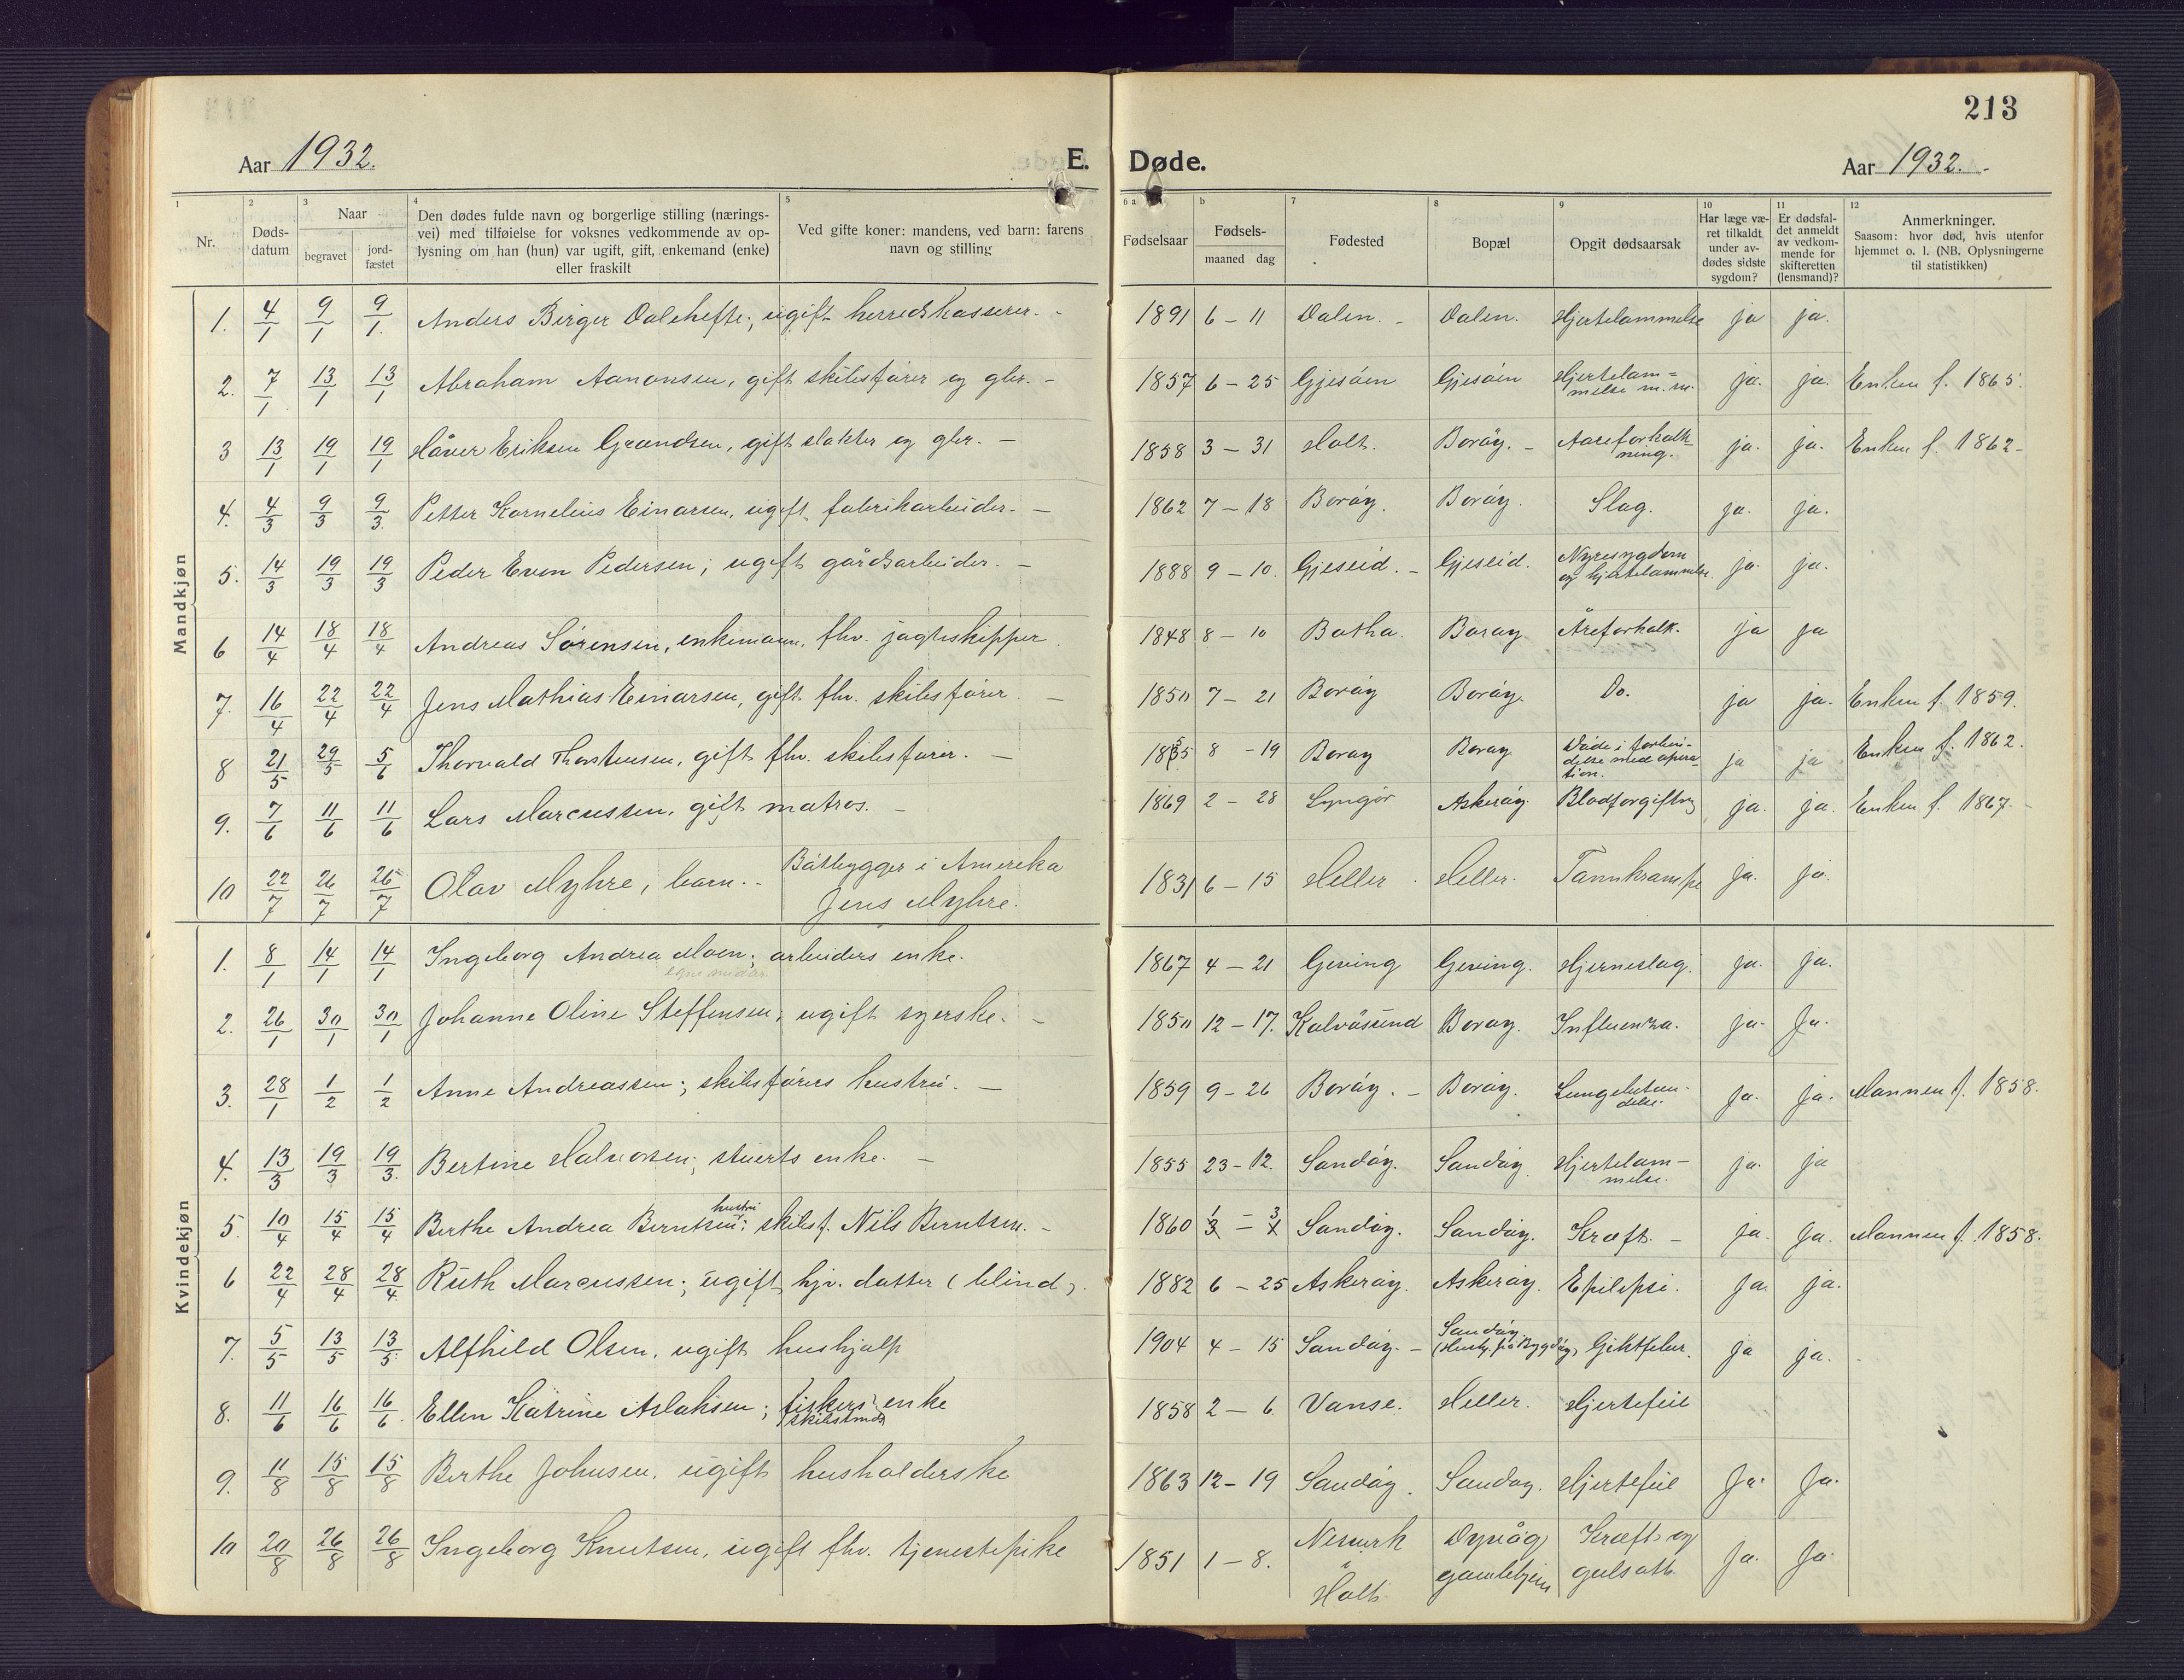 213
Aar 1932. E. Døde. Aar 1932.
1 2 3 4 5 6 a b 7 8 9 10 11 12
Nr.
Dødsdatum
Naar
begravet
jordfæstet
Den dødes fulde navn og borgerlige stilling (næringsvei) med tilføielse for voksnes vedkommende av oplysning om han (hun) var ugift, gift, enkemand (enke) eller fraskilt
Ved gifte koner: mandens, ved barn: farens navn og stilling
Fødselsaar
Fødselsmaaned dag
Fødested
Bopæl
Opgit dødsaarsak
Har læge været tilkaldt under avdødes sidste sygdom?
Er dødsfaldet anmeldt av vedkommende for skifteretten (lensmand)?
Anmerkninger.
Saasom: hvor død, hvis utenfor hjemmet o. l. (NB. Oplysningerne til statistikken)
Mandkjøn
1. 4/1 9/1 9/1. Anders Birger Dalehefte; ugift herredskasserer. - 1891 6 - 11 Dalen. - Dalen. Hjertelammelse ja ja.
2. 7/1 13/1 13/1 Abraham Aanonsen, gift skibsfører og gbr. - 1857 6 - 25 Gjesøen Gjesøen Hjertelam=melse m.m. ja. ja. Enken f. 1865.
3 13/1 19/1 19/1 Håver Eriksen Grændsen, gift slakter og gbr. - 1858 3 - 31 Holt. Borøy. - Aareforkalkning. ja. ja. Enken f. 1862 -
4. 4/3 9/3 9/3. Petter Kornelius Einarsen, ugift fabrikarbeider. - 1862 7 - 18 Borøy. Borøy. Slag. ja. ja.
5. 14/3 19/3 19/3 Peder Even Pedersen; ugift gårdsarbeider. - 1888 9 - 10. Gjeseid. - Gjeseid. Nyresygdom og hjertelammelse. ja. ja.
6 14/4 18/4 18/4 Andreas Sørensen, enkemann, fhv. jagtskipper. 1848 8 - 10 Botha. Borøy Åreforkalk. ja ja
7. 16/4 22/4 22/4 Jens Mathias Einarsen, gift fhv. skibsfører. - 1850 7 - 21 Borøy Borøy. Do. ja ja. Enken f. 1859.
8 21/5 29/5 5/6 Thorvald Thorstensen, gift fhv. skibsfører. - 1855 8 - 19 Borøy Borøy Døde i forbindelse med operation. ja ja Enken f. 1862.
9. 7/6 11/6 11/6 Lars Marcussen, gift matros. - 1869 2 - 28 Lyngør Askerøy. Blodforgiftng ja. ja. Enken f. 1867. -
10 22/7 26/7 26/7 Olav Myhre, barn. - Båtbygger i Amerika Jens Myhre. 1831 6 - 15 Heller. Heller. Tannkrampe ja. ja.
Kvindekjøn
1. 8/1 14/1 14/1 Ingeborg Andrea Moen; arbeiders enke. 1867 4 - 21 Geving Geving. Hjerneslag. ja. ja.
2. 26/1 30/1 30/1 Johanne Oline Steffensen; ugift syerske. - 1850 12 - 17. Kalvøsund Borøy. Influenza. ja. Ja.
3. 28/1 1/2 1/2 Anne Andreassen; skibsførers hustru. - 1859 9 - 26 Borøy. - Borøy. Lungebetendelse. ja. ja. Mannen f. 1858.
4. 13/3 19/3 19/3. Bertine Halvorsen; stuerts enke. - 1855 23 - 12. Sandøy. Sandøy. Hjertelam-melse. ja. ja
5. 10/4 15/4 15/4 Berthe Andrea Berntsen; hustru skibsf. Nils Berntsen. - 1860 1 - 3 Sandøy. Sandøy. Kræft. - ja. ja. Mannen f. 1858.
6 22/4 28/4 28/4. Ruth Marcussen; ugift hjv. datter (blind). 1882 6 - 25 Askerøy. Askerøy. Epilepsi. ja. ja.
7. 5/5 13/5 13/5. Alfhild Olsen, ugift hushjalp 1904 4 - 15 Sandøy. - Sandøy. Giktfeber. ja ja.
8. 11/6 16/6 16/6. Ellen Katrine Aslaksen; fiskers enke 1858 2 - 6. Vanse. Heller. Hjertefeil
9. 11/8 15/8 15/8 Berthe Johnsen, ugift husholderske 1863 12 - 19 Sandøy. Sandøy. Hjertefeil Ja. Ja.
10 20/8 26/8 26/8 Ingeborg Knutsen, ugift fhv. tjenestepike 1851 1 - 8. Nesverk i Holt Dypvåg gamlehjem Kræft og gulsott. Ja. Ja.